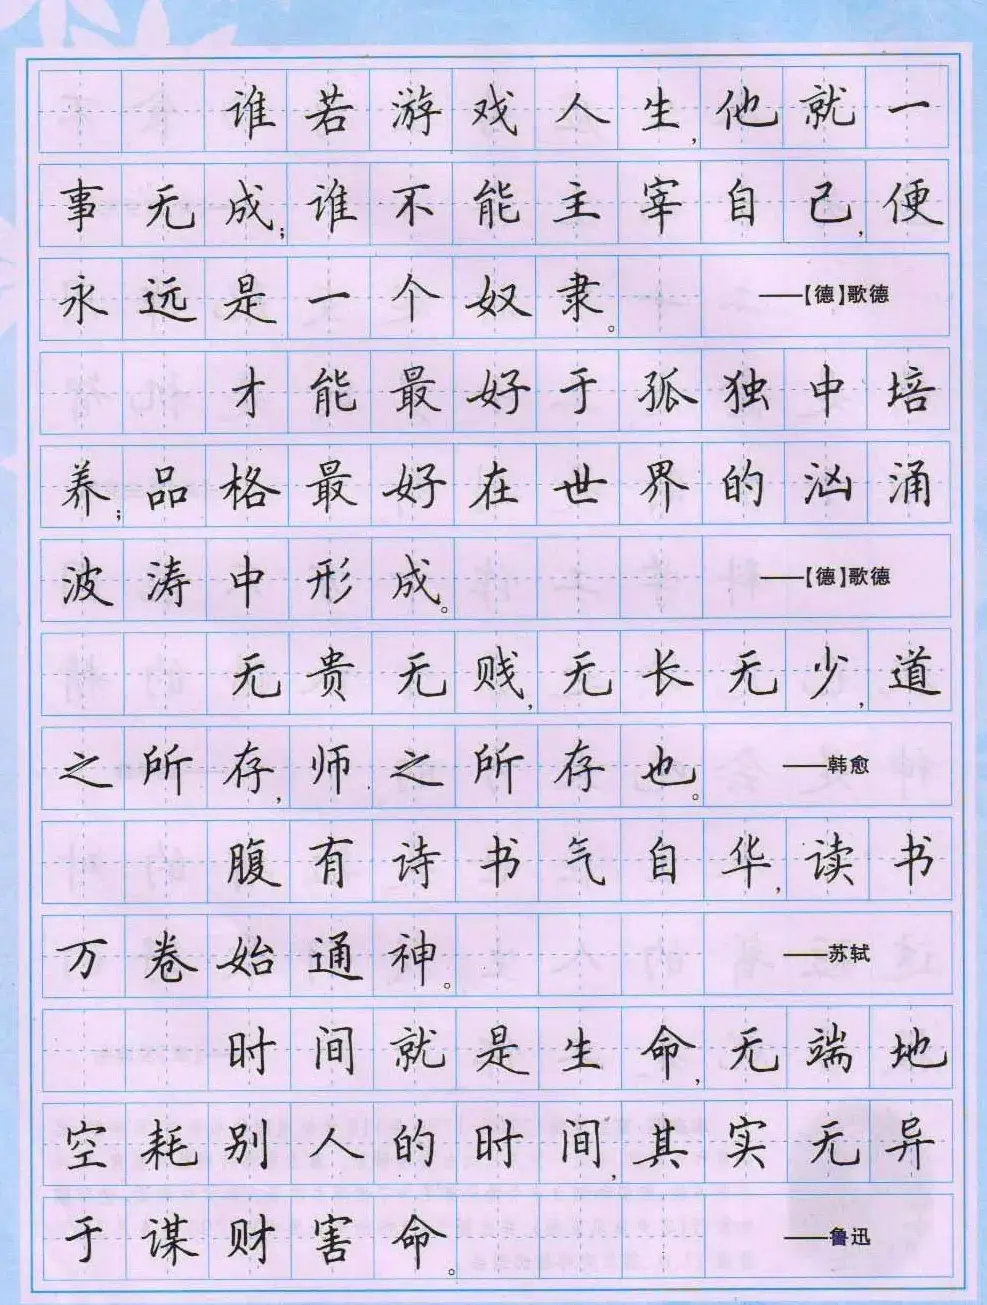 谁若游戏人生,他就一
事无成;谁不能主宰自己,便
永远是一个奴隶。——【德】歌德
才能最好于孤独中培
养;品格最好在世界的汹涌
波涛中形成。——【德】歌德
无贵无贱,无长无少,道
之所存,师之所存也。——韩愈
腹有诗书气自华,读书
万卷始通神。——苏轼
时间就是生命,无端地
空耗别人的时间,其实无异
于谋财害命。——鲁迅